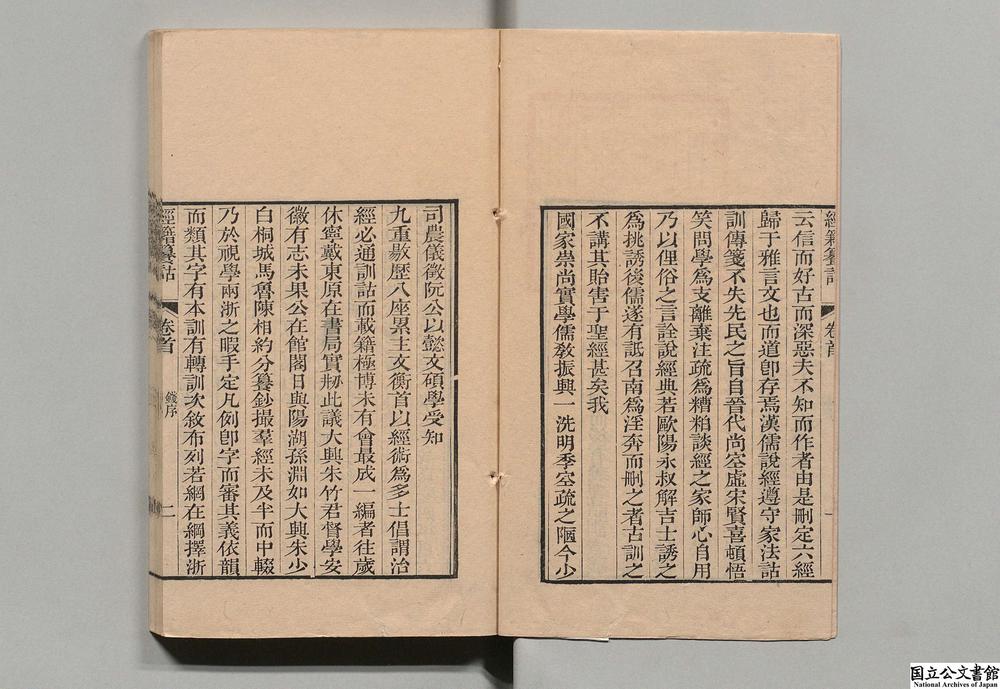 經籍籑詁 卷首
云信而好古而深惡夫不知而作者由是刪定六經
歸于雅言文也而道卽存焉漢儒說經遵守家法詁
訓傳箋不失先民之旨自晉代尚空虛宋賢喜頓悟
笑問學爲支離棄注疏爲糟粕談經之家師心自用
乃以俚俗之言詮說經典若歐陽永叔解吉士誘之
爲挑誘後儒遂有詆召南爲淫奔而刪之者古訓之
不講其貽害于聖經甚矣我
國家崇尚實學儒敎振興一洗明季空疏之陋今少
司農儀徵阮公以懿文碩學受知
九重敭歷八座累主文衡首以經術爲多士倡謂治
經必通訓詁而載籍極博未有會最成一編者往歲
休寧戴東原在書局實剏此議大興朱竹君督學安
徽有志未果公在館閣日與陽湖孫淵如大興朱少
白桐城馬魯陳相約分籑鈔撮羣經未及半而中輟
乃於視學兩浙之暇手定凡例卽字而審其義依韻
而類其字有本訓有轉訓次敘布列若網在綱擇浙
經籍籑詁 卷首 錢序 二
国立公文書館
National Archives of Japan